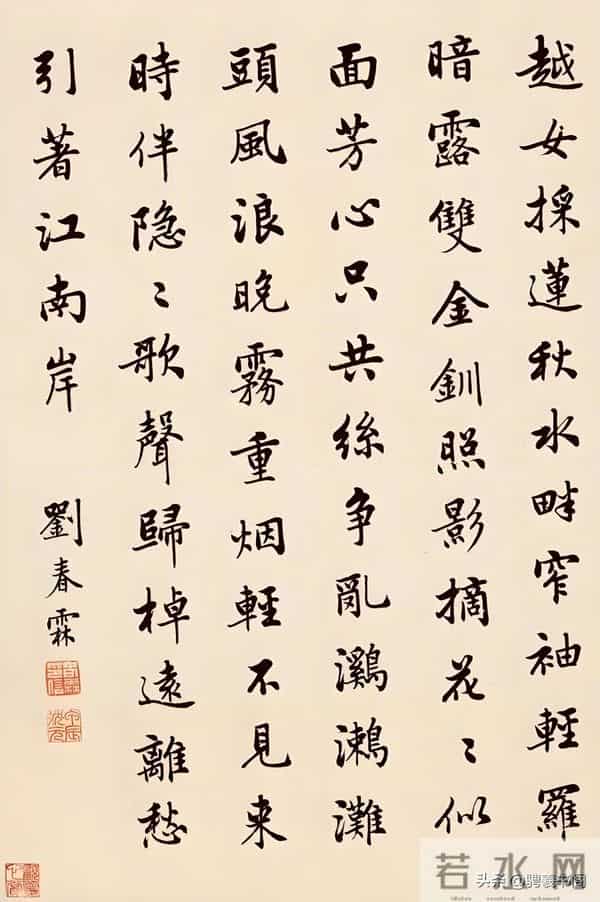 越女採蓮秋水畔窄袖輕羅
暗露雙金釧照影摘花〻似
面芳心只共絲争亂鸂鶒灘
頭風浪晚霧重烟輕不見来
時伴隐〻歌聲歸棹遠離愁
引著江南岸
劉春霖
若水网
头条